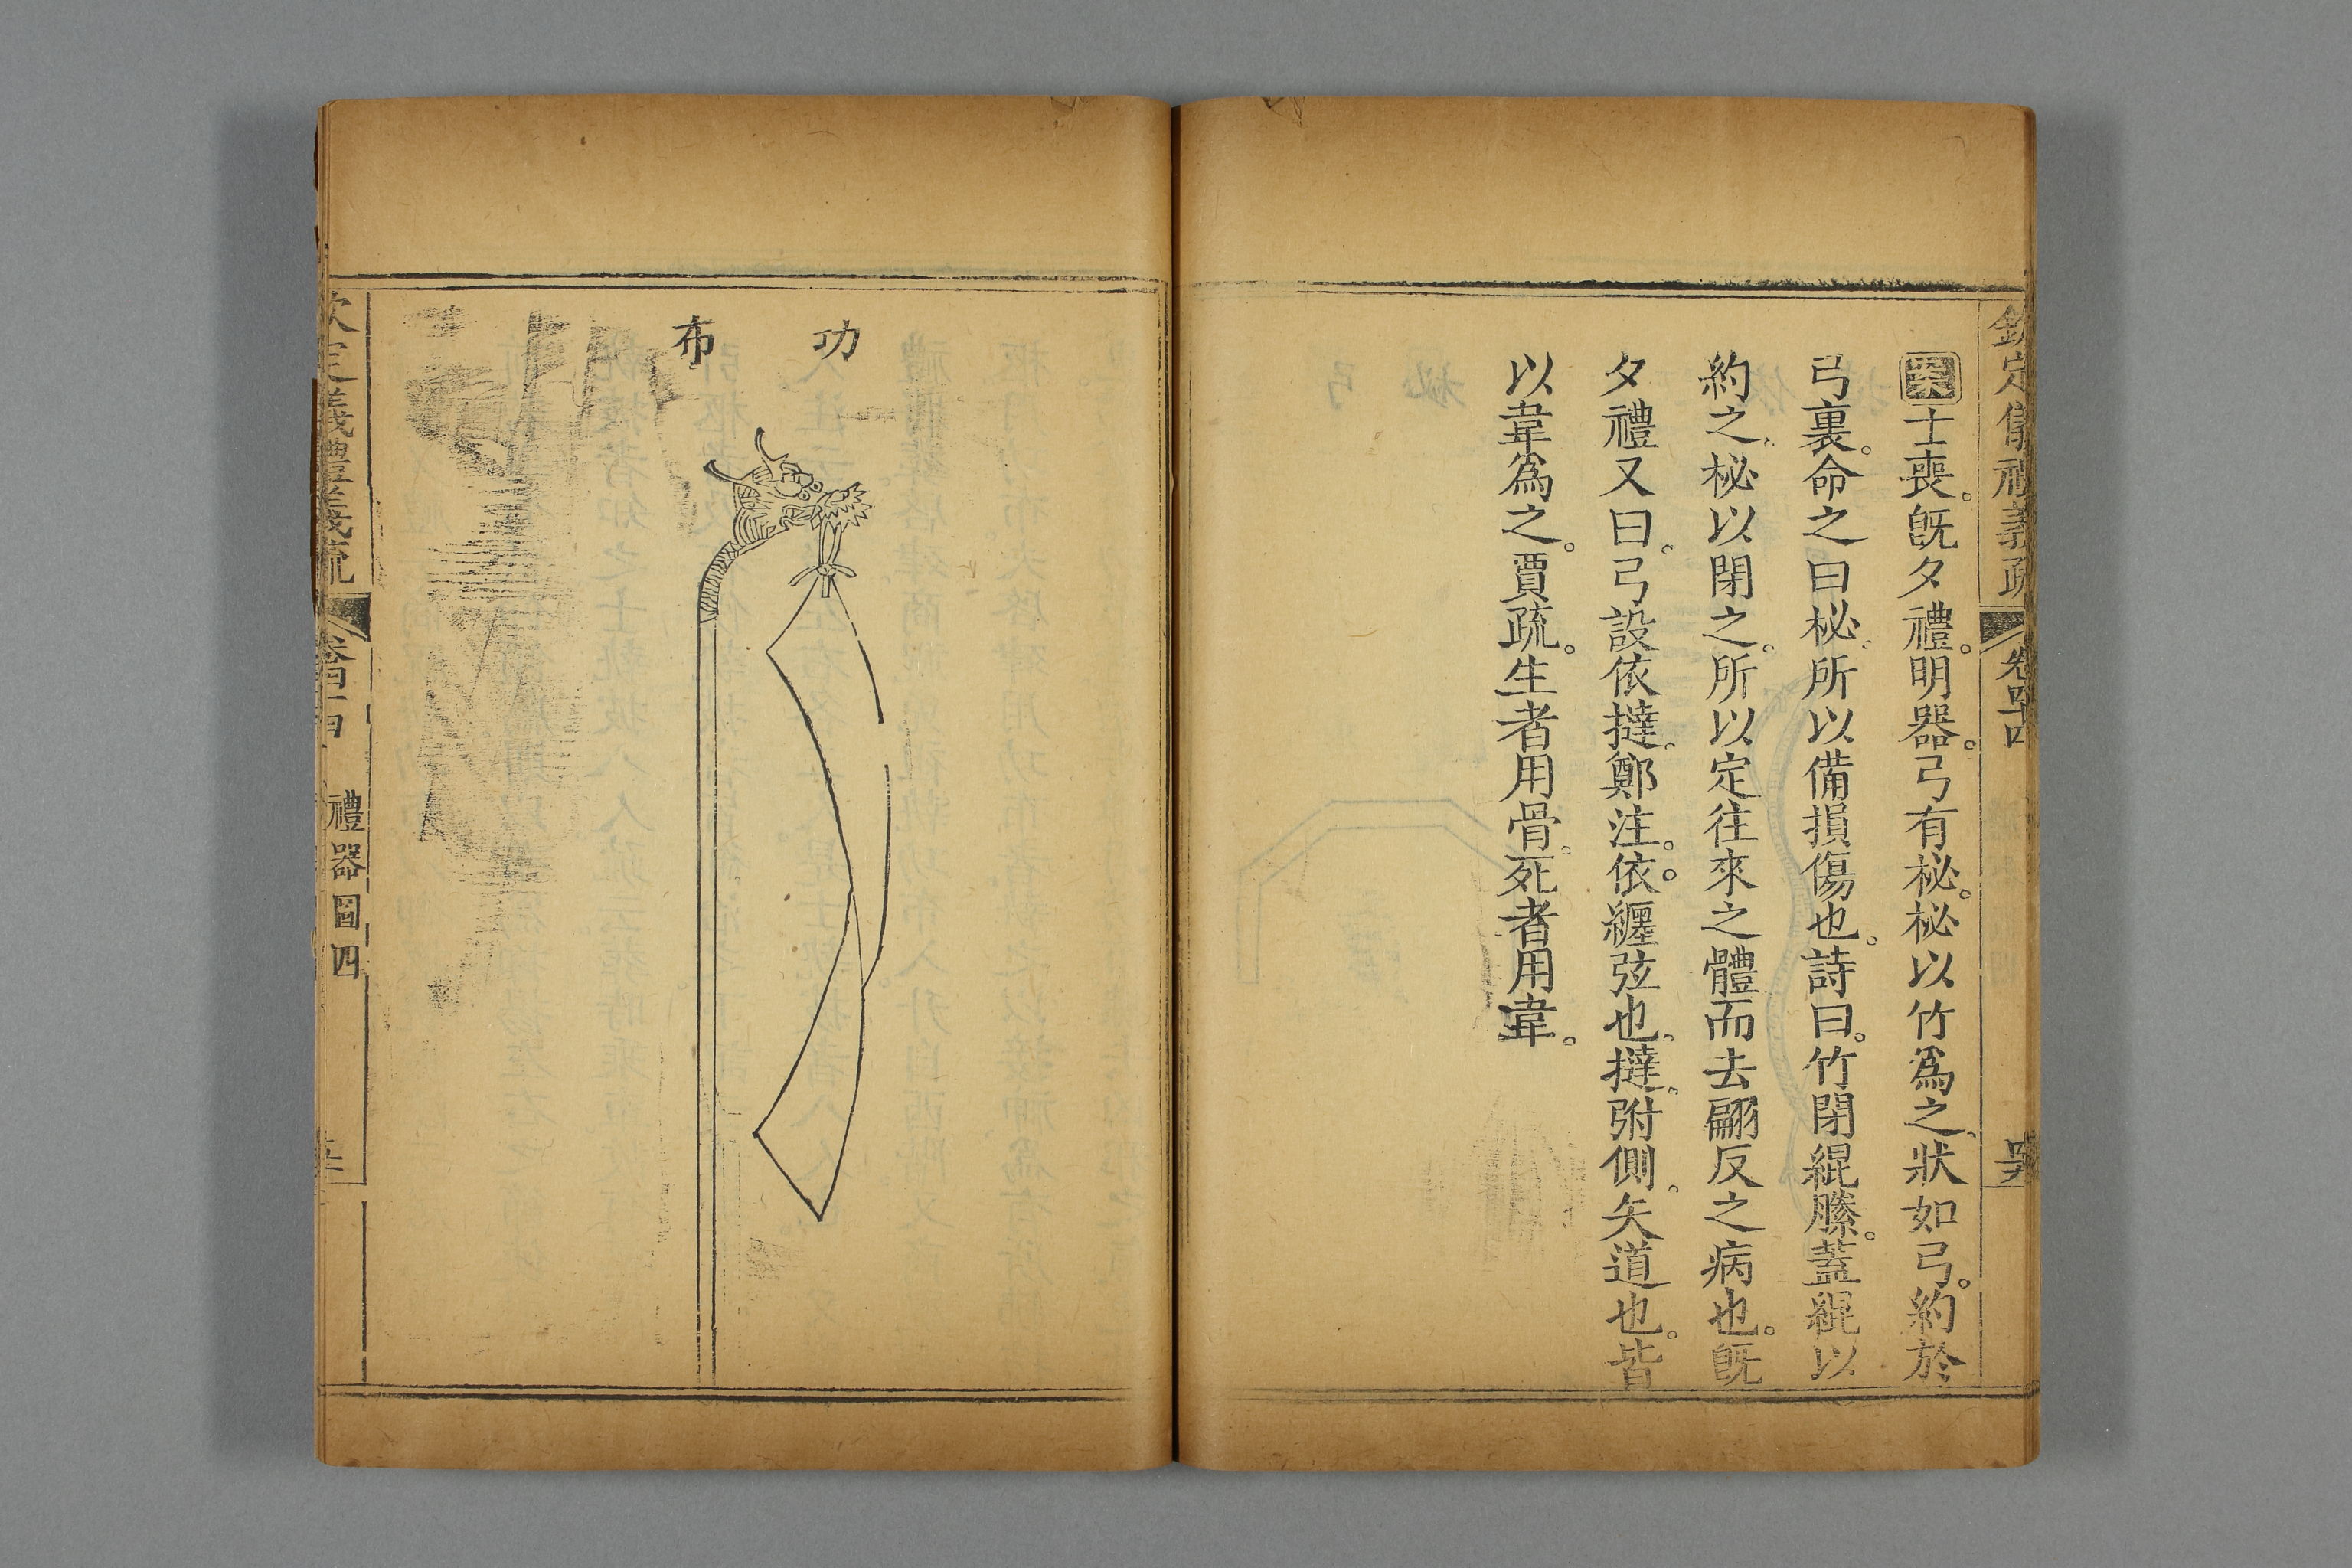 欽定儀禮義疏 卷四十四
案士喪。旣夕禮。明器。弓有柲。柲以竹爲之、狀如弓。約於
弓裏。命之曰柲、所以備損傷也。詩曰。竹閉緄縢。蓋緄以
約之、柲以閉之。所以定往來之體而去翩反之病也。旣
夕禮又曰。弓設依撻。鄭注。依。纏弦也。撻。弣側。矢道也。皆
以韋爲之。賈疏。生者用骨。死者用韋。
功
布
欽定儀禮義疏 卷四十四 禮器圖四